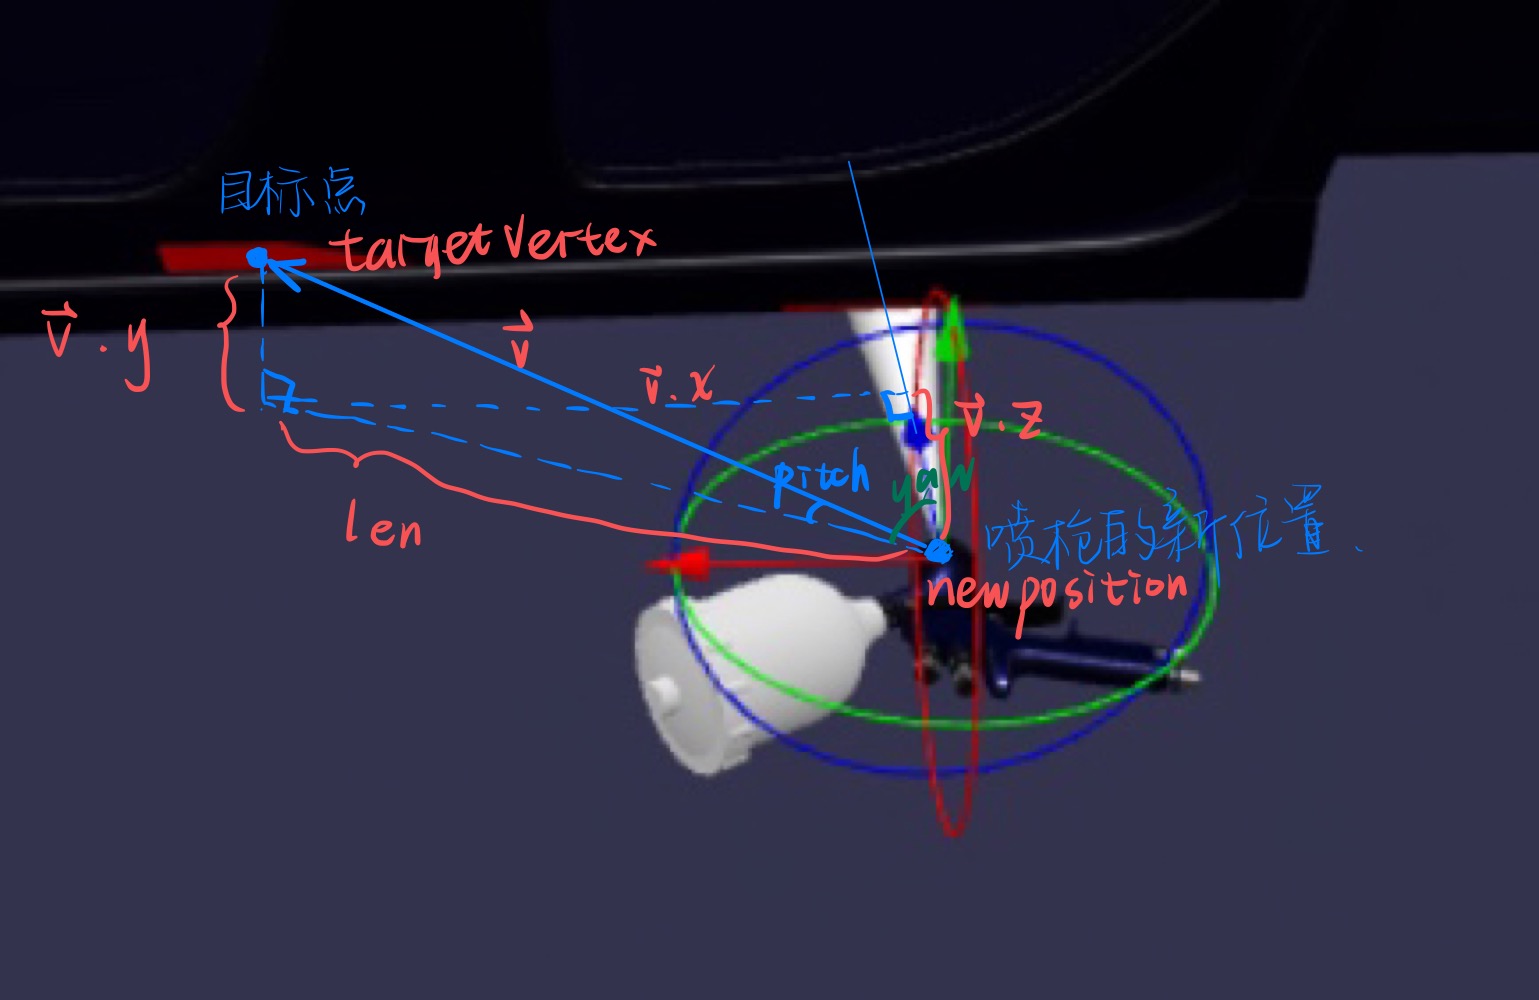 目标点
targetVertex
v⃗.y
v⃗
v⃗.x
v⃗.z
pitch
yaw
len
喷枪的新位置.
newposition